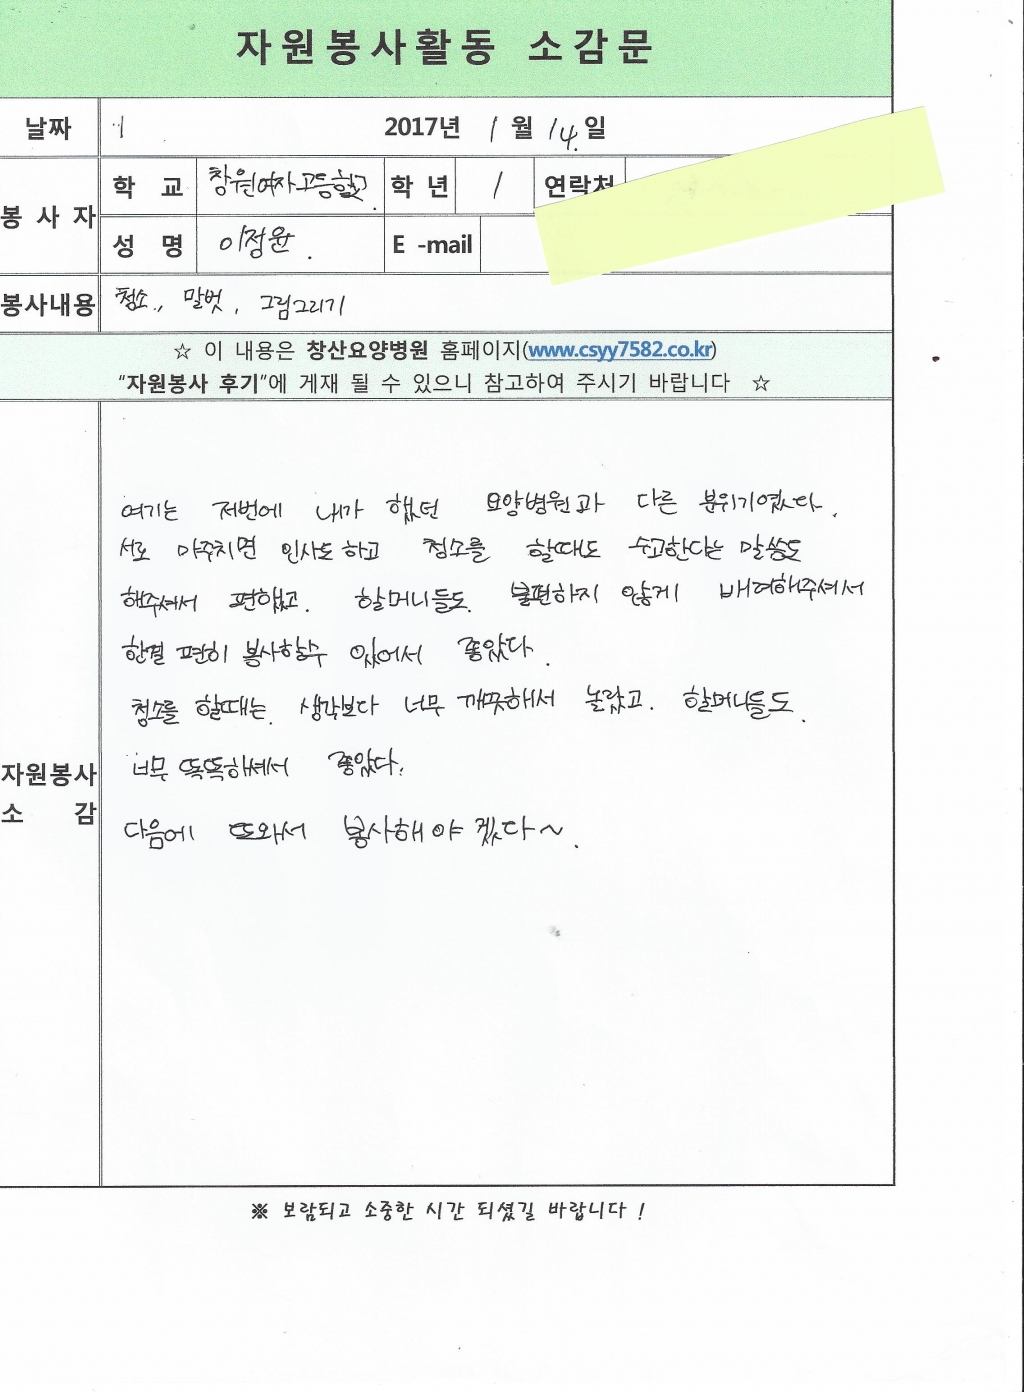 자원봉사활동 소감문
날짜 2017년 1월 14일
봉사자 학교 창원여자고등학교 학년 1 연락처
성명 이정윤 E-mail
봉사내용 청소, 말벗, 그림그리기
☆ 이 내용은 창산요양병원 홈페이지(www.csyy7582.co.kr)
“자원봉사 후기”에 게재 될 수 있으니 참고하여 주시기 바랍니다 ☆
자원봉사 소감
여기는 저번에 내가 했던 요양병원과 다른 분위기였다.
서로 마주치면 인사도 하고 청소를 할때도 수고한다는 말씀도
해주셔서 편했고. 할머니들도 불편하지 않게 배려해주셔서
한결 편히 봉사할수 있어서 좋았다.
청소를 할때는 생각보다 너무 깨끗해서 놀랐고. 할머니들도
너무 똑똑하셔서 좋았다.
다음에 또와서 봉사해야겠다~.
※ 보람되고 소중한 시간 되셨길 바랍니다 !